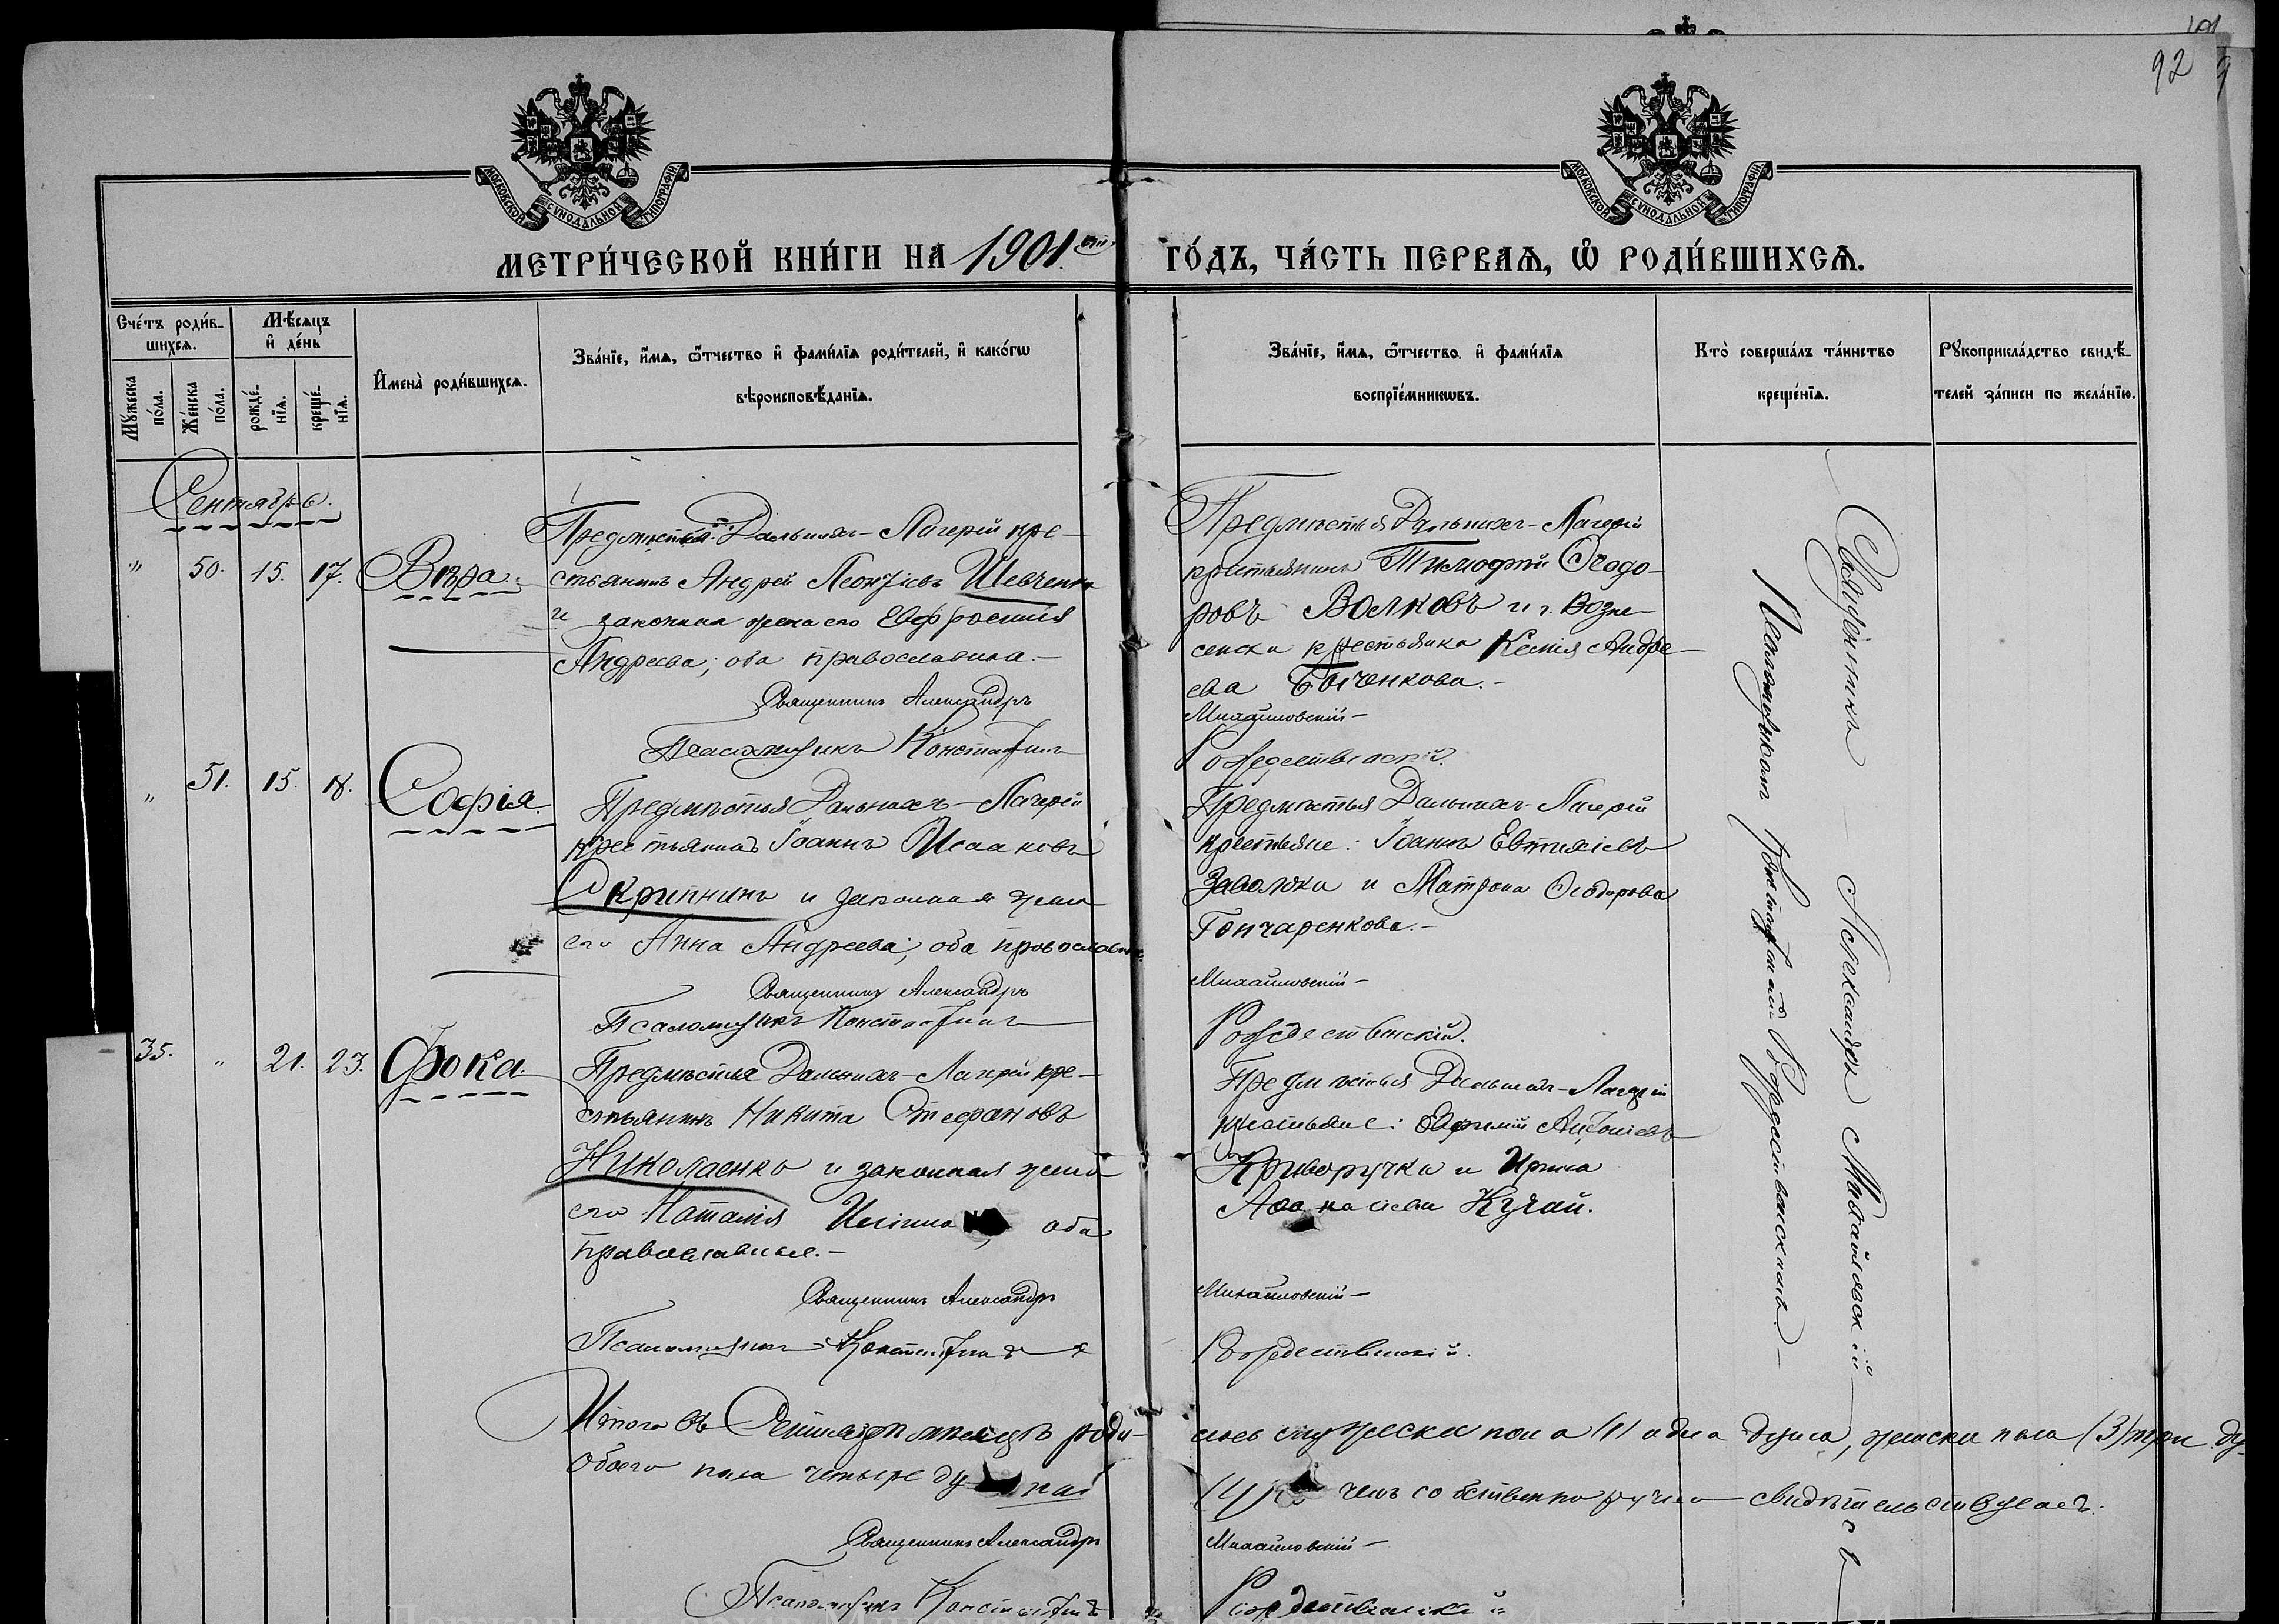 92
МОСКОВСКОЙ СУНОДАЛЬНОЙ ТИПОГРАФІИ.
МОСКОВСКОЙ СУНОДАЛЬНОЙ ТИПОГРАФІИ.
МЕТРИ́ЧЕСКОЙ КНИ́ГИ НА 1901 ГО́ДЪ, ЧА́СТЬ ПЕРВАѦ, Ѡ҆ РОДИ́ВШИХСѦ.
Сче́тъ роди́в-
шихсѧ.
Мꙋ́жеска
по́ла.
Же́нска
по́ла.
Мѣ́сѧцъ
и҆ де́нь
рожде́-
нїѧ.
креще́-
нїѧ.
И҆мена̀ роди́вшихсѧ.
Зва́нїе, и҆́мѧ, ѻ҆́тчество и҆ фами́лїѧ роди́телей, и҆ како́гѡ
вѣроисповѣ́данїѧ.
Зва́нїе, и҆́мѧ, ѻ҆́тчество и҆ фами́лїѧ
воспрїе́мникѡвъ.
Кто̀ соверша́лъ та́инство
креще́нїѧ.
Рꙋкоприкла́дство свидѣ́-
телей за́писи по жела́нїю.
Сентябрь.
" 50. 15. 17. Вѣра.
Предмѣстья Дальнихъ-Лагерей кре-
стьянинъ Андрей Леонтіевъ Шевченко
и законная жена его Евфросинія
Андреева; оба православные.-
Священникъ Александръ
Псаломщикъ Константинъ
Предмѣстья Дальнихъ-Лагерей
крестьянинъ Тимофей Ѳеодо-
ровъ Волковъ и г. Возне-
сенска крестьянка Ксенія Андре-
ева Бойченкова.-
Михайловскій-
Рождественскій.
" 51. 15. 18. Софія.
Предмѣстья Дальнихъ-Лагерей
крестьянинъ Іоаннъ Исааковъ
Скрипникъ и законная жена
его Анна Андреева; оба православные.
Священникъ Александръ
Псаломщикъ Константинъ
Предмѣстья Дальнихъ-Лагерей
крестьяне: Іоаннъ Евтихіевъ
Заволока и Матрона Ѳеодорова
Гончаренкова.-
Михайловскій-
Рождественскій.
35. " 21. 23. Фока.
Предмѣстья Дальнихъ-Лагерей кре-
стьянинъ Никита Стефановъ
Николаенко и законная жена
его Наталія оба
православные.-
Священникъ Александръ
Псаломщикъ Константинъ
Предмѣстья Дальнихъ-Лагерей
крестьяне: Евфимій Антоніевъ
Криворучка и Ирина
Кучай.
Михайловскій-
Рождественскій.
Священникъ Александръ Михайловскій
Псаломщикомъ Константиномъ Рождественскимъ.-
Итого въ Сентябрѣ мѣсяцѣ роди-
лось мужеска пола (1) одна душа, женска пола (3) три ду-
обоего пола четыре ду
(4) чемъ собственноручно свидѣтельствуемъ.
Священникъ Александръ
Михайловскій-
Псаломщикъ Константинъ
Рождественскій